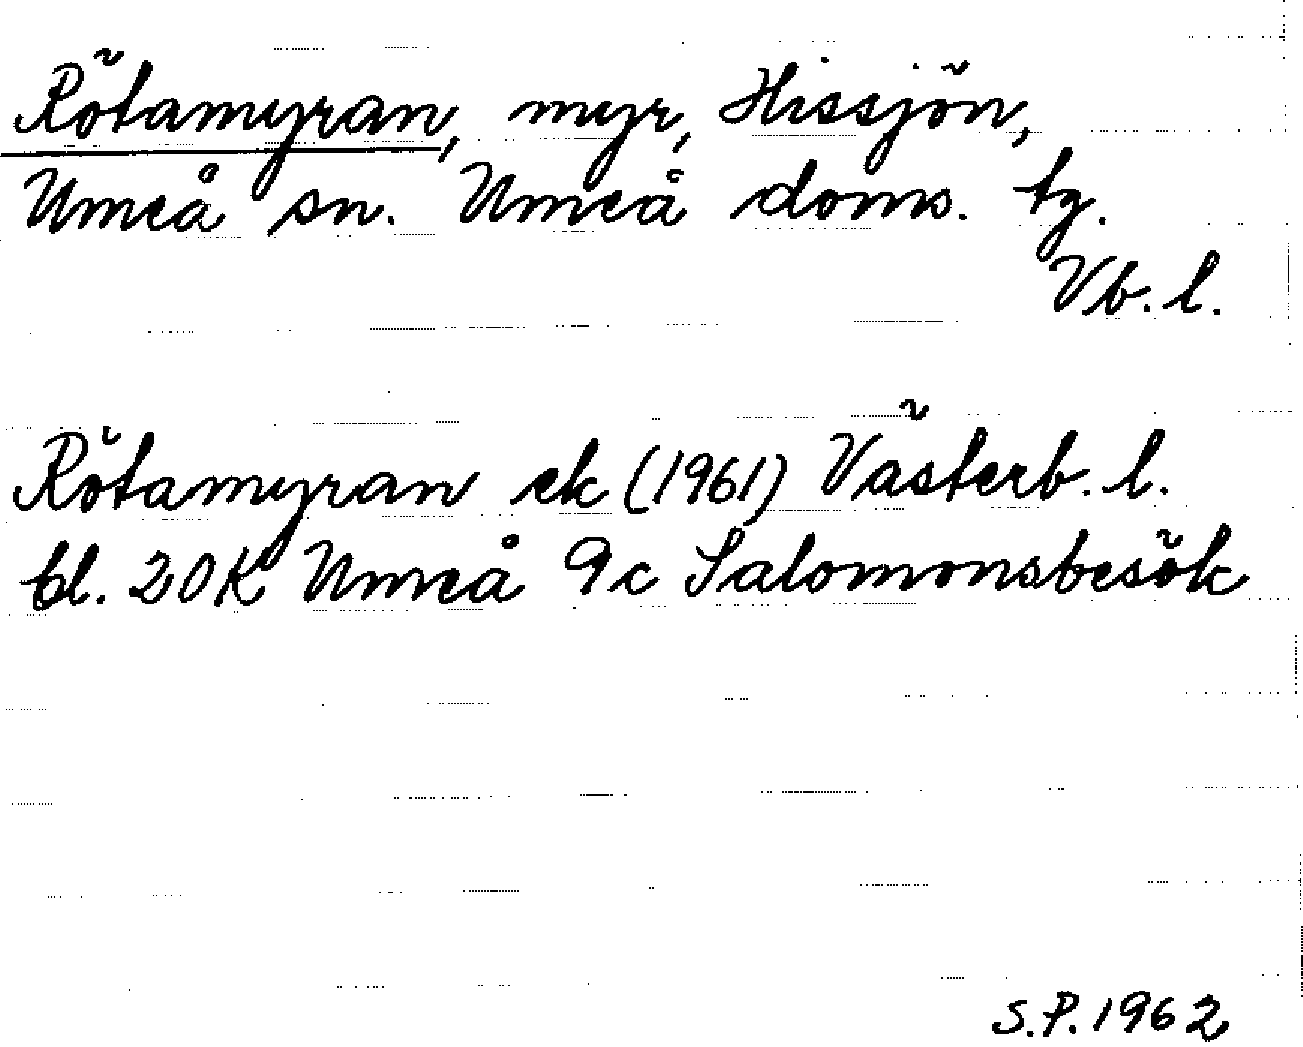 Rötamyran, myr, Hissjön,
Umeå sn. Umeå doms. tg.
Vb. l.
Rötamyran ek (1961) Västerb. l.
bl. 20K Umeå 9c Salomonsbesök
S.P. 1962